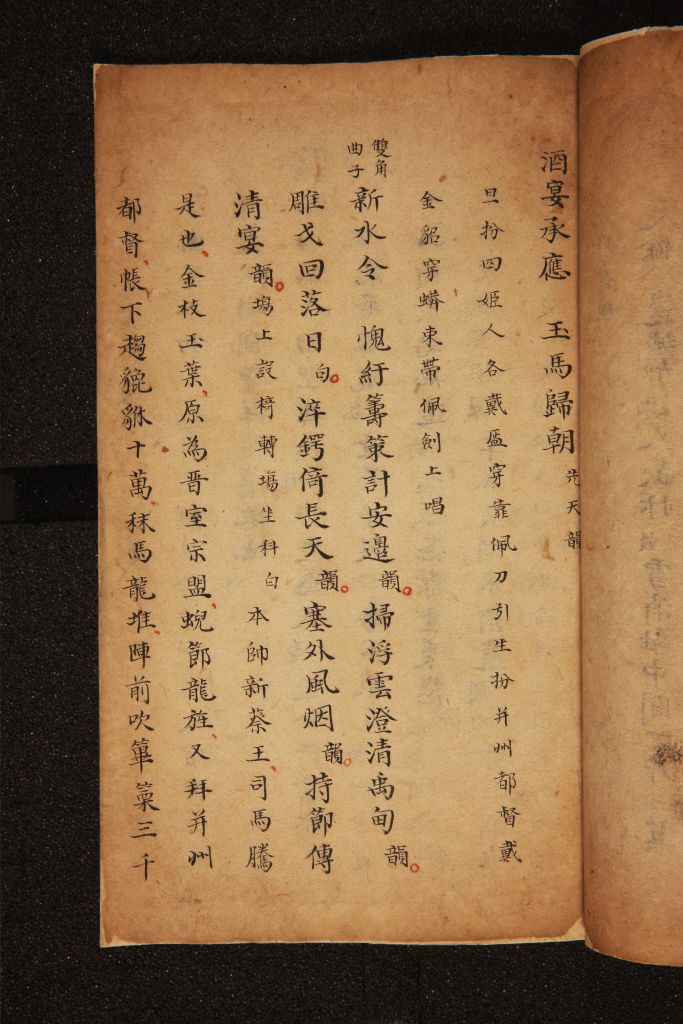 酒宴承應　玉馬歸朝 先天韻
旦扮四姬人各戴盔穿靠佩刀引生扮并州都督戴
金貂穿蟒束帶佩劍上唱
雙角
曲子
新水令　愧紆籌策計安邊韻掃浮雲澄清禹甸韻
雕戈回落日句淬鍔倚長天韻塞外風烟韻持節傳
清宴韻塲上設椅轉塲坐科白　本帥新蔡王司馬騰
是也金枝玉葉原為晋室宗盟蜺節龍旌又拜并州
都督帳下趨貔貅十萬秣馬龍堆陣前吹篳篥三千